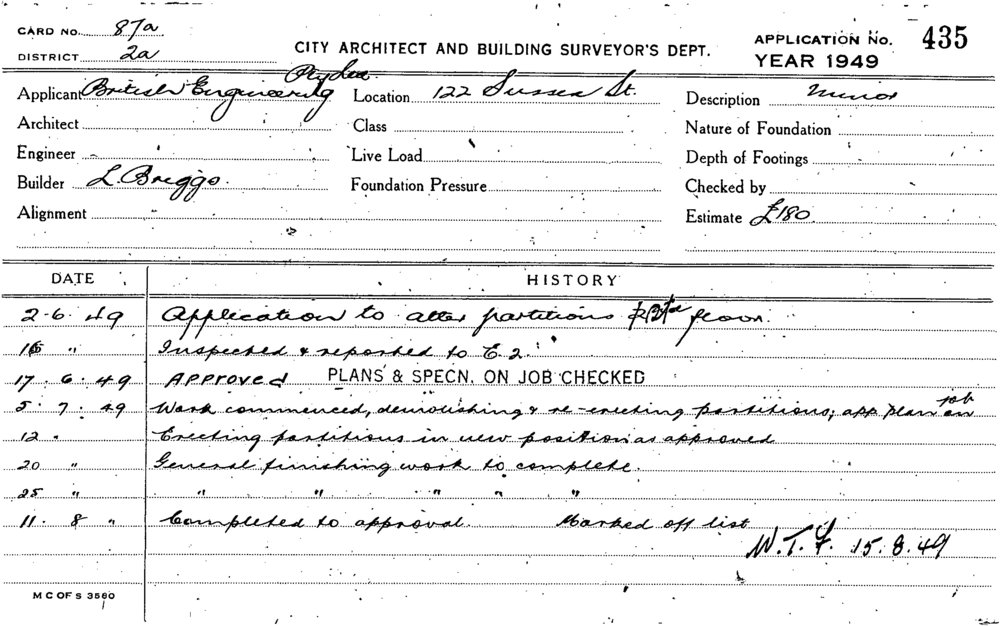 CARD NO. 87a
DISTRICT 2a
CITY ARCHITECT AND BUILDING SURVEYOR'S DEPT.
APPLICATION No. 435
YEAR 1949
Applicant British Engineering Pty Ltd
Location 122 Sussex St.
Description Minor
Architect
Class
Nature of Foundation
Engineer
Live Load
Depth of Footings
Builder L. Briggs.
Foundation Pressure
Checked by
Alignment
Estimate £180
DATE HISTORY
2.6.49 Application to alter partitions floor.
16 " Inspected & reported to E.2.
17.6.49 Approved PLANS & SPECN. ON JOB CHECKED
5.7.49 Work commenced, demolishing & re-erecting partitions; app plan on job
12 " Erecting partitions in new position as approved
20 " General finishing work to complete.
25 " " " " " "
11.8 " Completed to approval. Marked off list
W.T.F. 15.8.49
M C OF S 3560